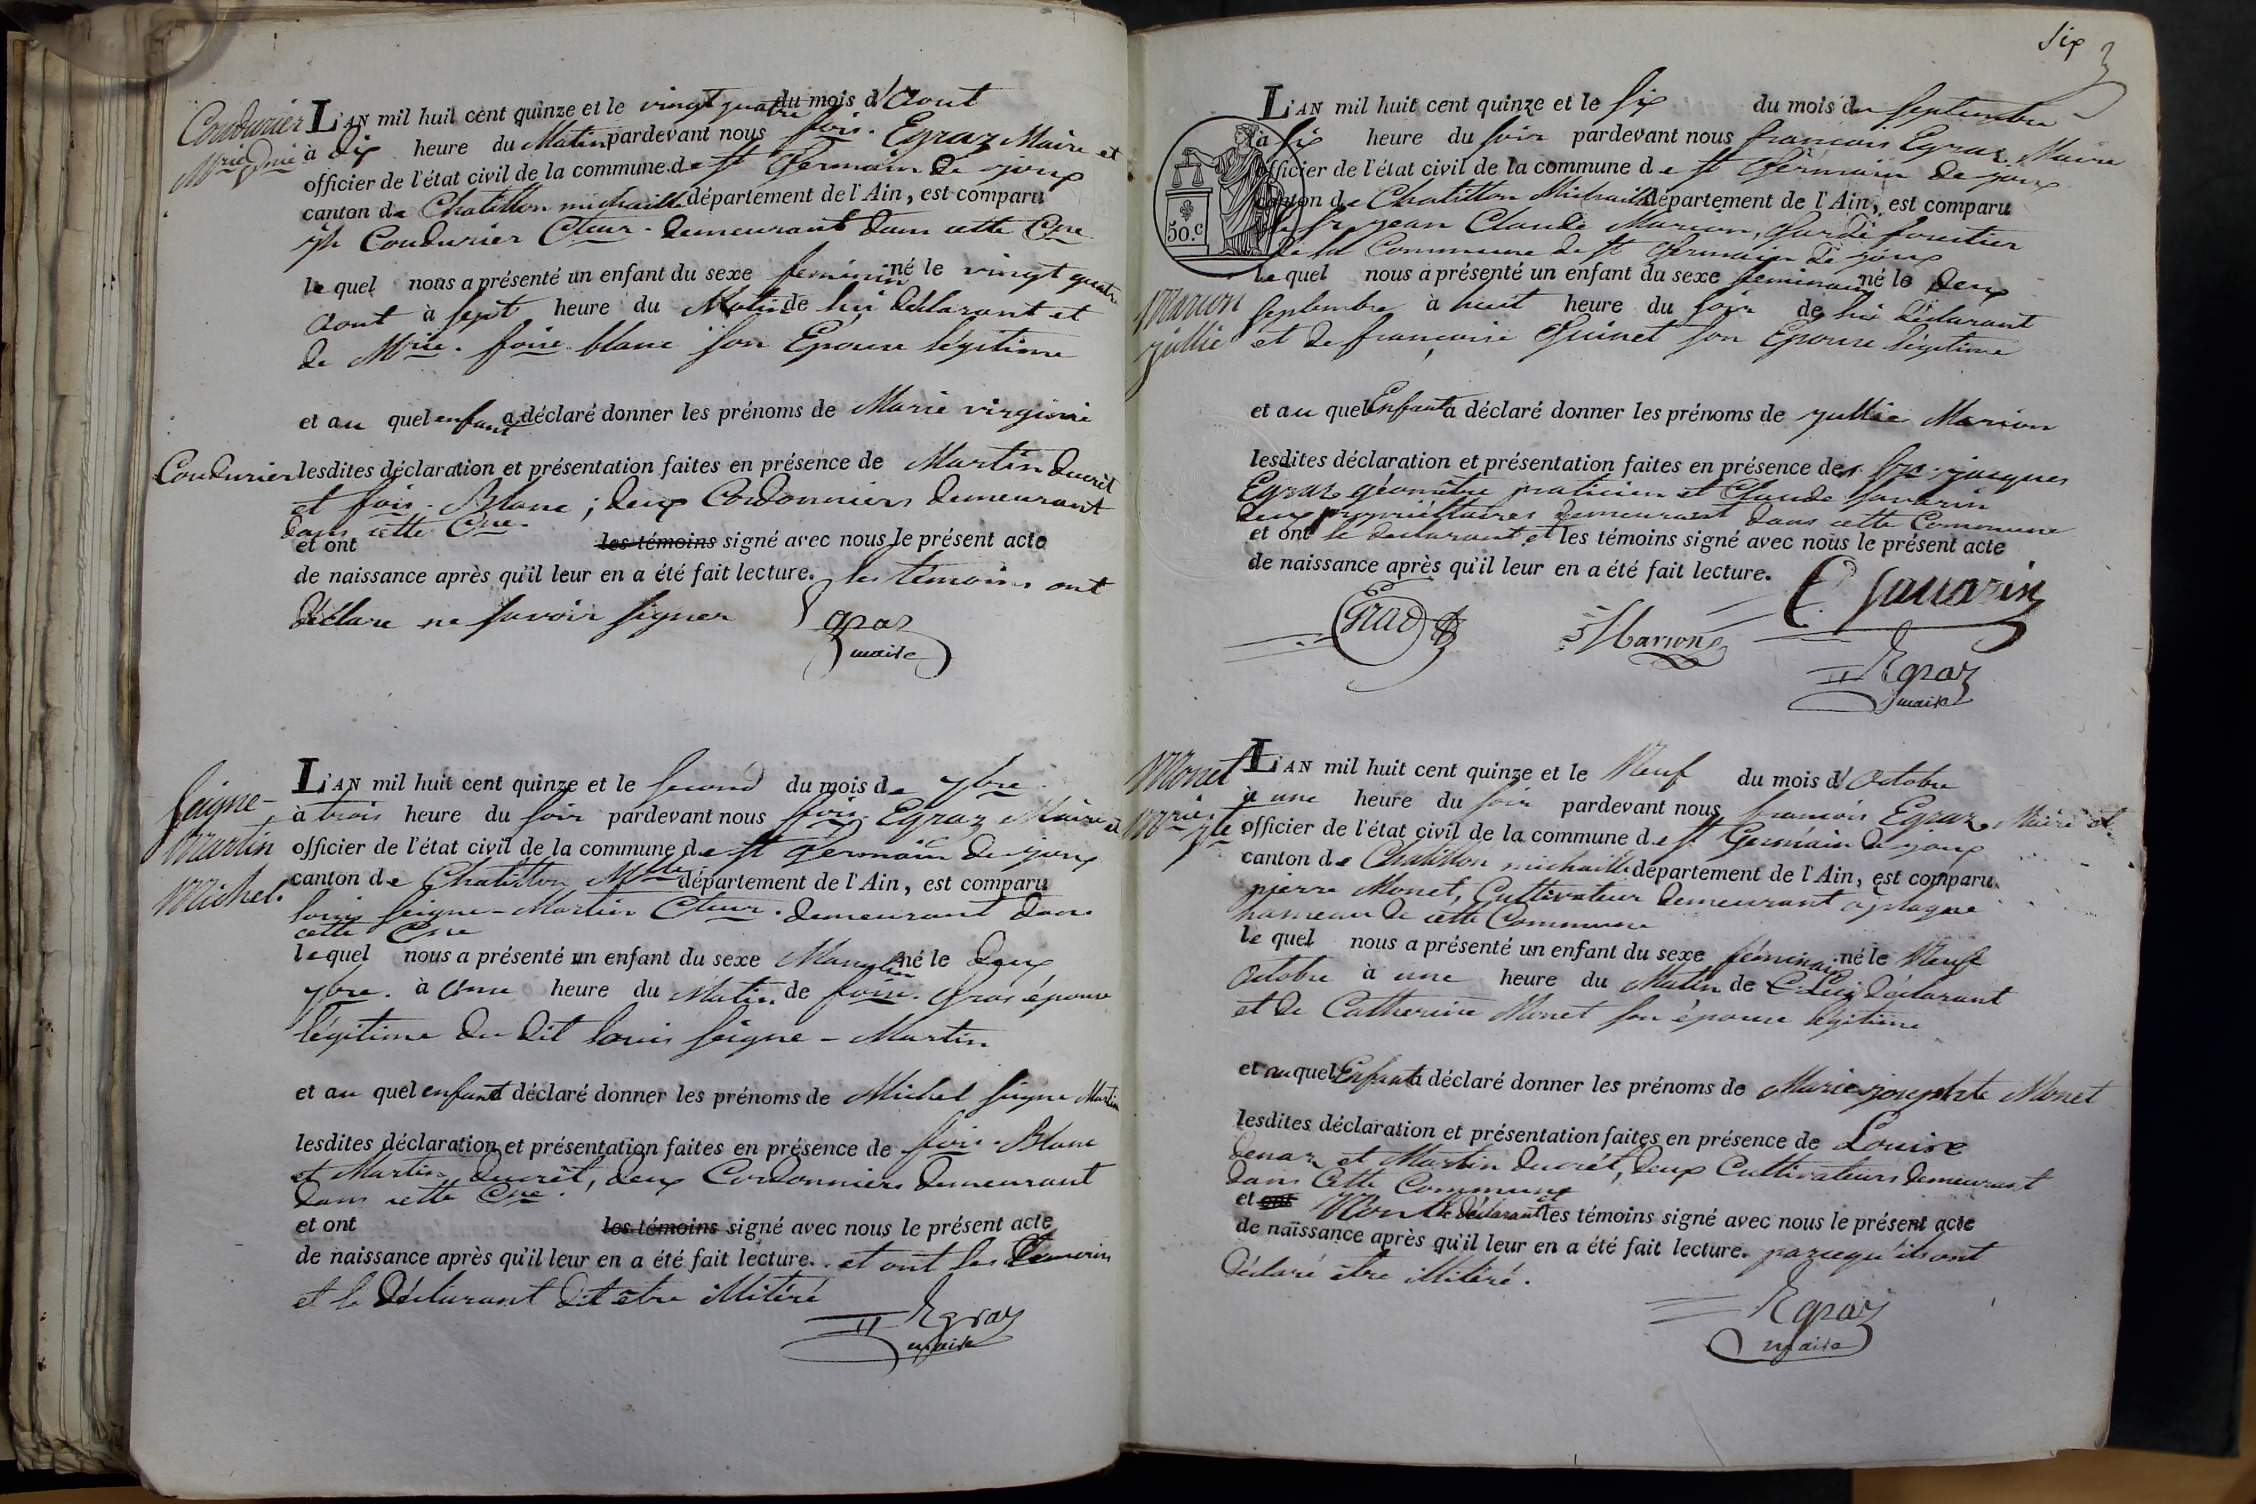 Coudurier
Mrie Gnie
L'AN mil huit cent quinze et le vingt quatre du mois d'Aout
à dix heure du Matin pardevant nous fois. Egraz Maire et
officier de l'état civil de la commune de st Germain de joux
canton de Chatillon michaille département de l'Ain, est comparu
jh Coudurier Cteur. demeurant dans cette Cne
lequel nous a présenté un enfant du sexe feminin né le vingt quatre
Aout à sept heure du Matin de lui déclarant et
de Mrie. foise blanc son Epouse légitime
et au quel enfant a déclaré donner les prénoms de Marie virginie
Coudurier
lesdites déclaration et présentation faites en présence de Martin ducret
et fois. Blanc; deux Cordonniers demeurant
dans cette Cne.
et ont les témoins signé avec nous le présent acte
de naissance après qu'il leur en a été fait lecture. les témoins ont
déclare ne savoir signer
Egraz
maire
Seigne-
Martin
Michel.
L'AN mil huit cent quinze et le second du mois de 7bre
à trois heure du soir pardevant nous fois. Egraz Maire et
officier de l'état civil de la commune de st Germain de joux
canton de Chatillon Mlle département de l'Ain, est comparu
louis seigne-Martin Cteur. demeurant dans
cette Cne
lequel nous a présenté un enfant du sexe Masculin né le deux
7bre. à onne heure du Matin de foise. Gras épouse
légitime du dit louis seigne-Martin
et au quel enfant a déclaré donner les prénoms de Michel seigne Martin
lesdites déclaration et présentation faites en présence de fois. Blanc
et Martin ducret, deux Cordonniers demeurant
dans cette Cne.
et ont les témoins signé avec nous le présent acte
de naissance après qu'il leur en a été fait lecture. et ont les temoins
et le déclarant dit être illitéré
Egraz
maire
Six
50.c
L'AN mil huit cent quinze et le six du mois de septembre
à six heure du soir pardevant nous francois Egraz Maire
officier de l'état civil de la commune de st Germain de joux
canton de Chatillon Michaille département de l'Ain, est comparu
le sr jean Claude Marion, Garde forestier
de la Commune de st Germain de joux
lequel nous a présenté un enfant du sexe feminain né le deux
Marion
jullie
septembre à huit heure du soir de lui déclarant
et de francoise Guinet son Epouse légitime
et au quel Enfant a déclaré donner les prénoms de jullie Marion
lesdites déclaration et présentation faites en présence des srs jacques
Egraz géomêtre praticien et Claude savarin
deux propriétaires demeurant dans cette Commune
et ont le declarant et les témoins signé avec nous le présent acte
de naissance après qu'il leur en a été fait lecture.
C. Savarin
Egraz
Marion
Egraz
maire
Monet
Mrie
jte
L'AN mil huit cent quinze et le Neuf du mois d'Octobre
à une heure du soir pardevant nous francois Egraz Maire et
officier de l'état civil de la commune de st Germain de joux
canton de Chatillon michaille département de l'Ain, est comparu
pierre Monet, Cultivateur demeurant à plagne
hameau de cette Commune
lequel nous a présenté un enfant du sexe féminain né le Neuf
Octobre à une heure du Matin de Lui déclarant
et de Catherine Monet son épouse légitime
et au quel Enfant a déclaré donner les prénoms de Marie josephte Monet
lesdites déclaration et présentation faites en présence de Louise
et Martin ducrét, deux Cultivateurs demeurant
dans Cette Commune
et ont Nont le déclarant et les témoins signé avec nous le présent acte
de naissance après qu'il leur en a été fait lecture. parcequ'ils ont
déclaré être illitéré.
Egraz
maire